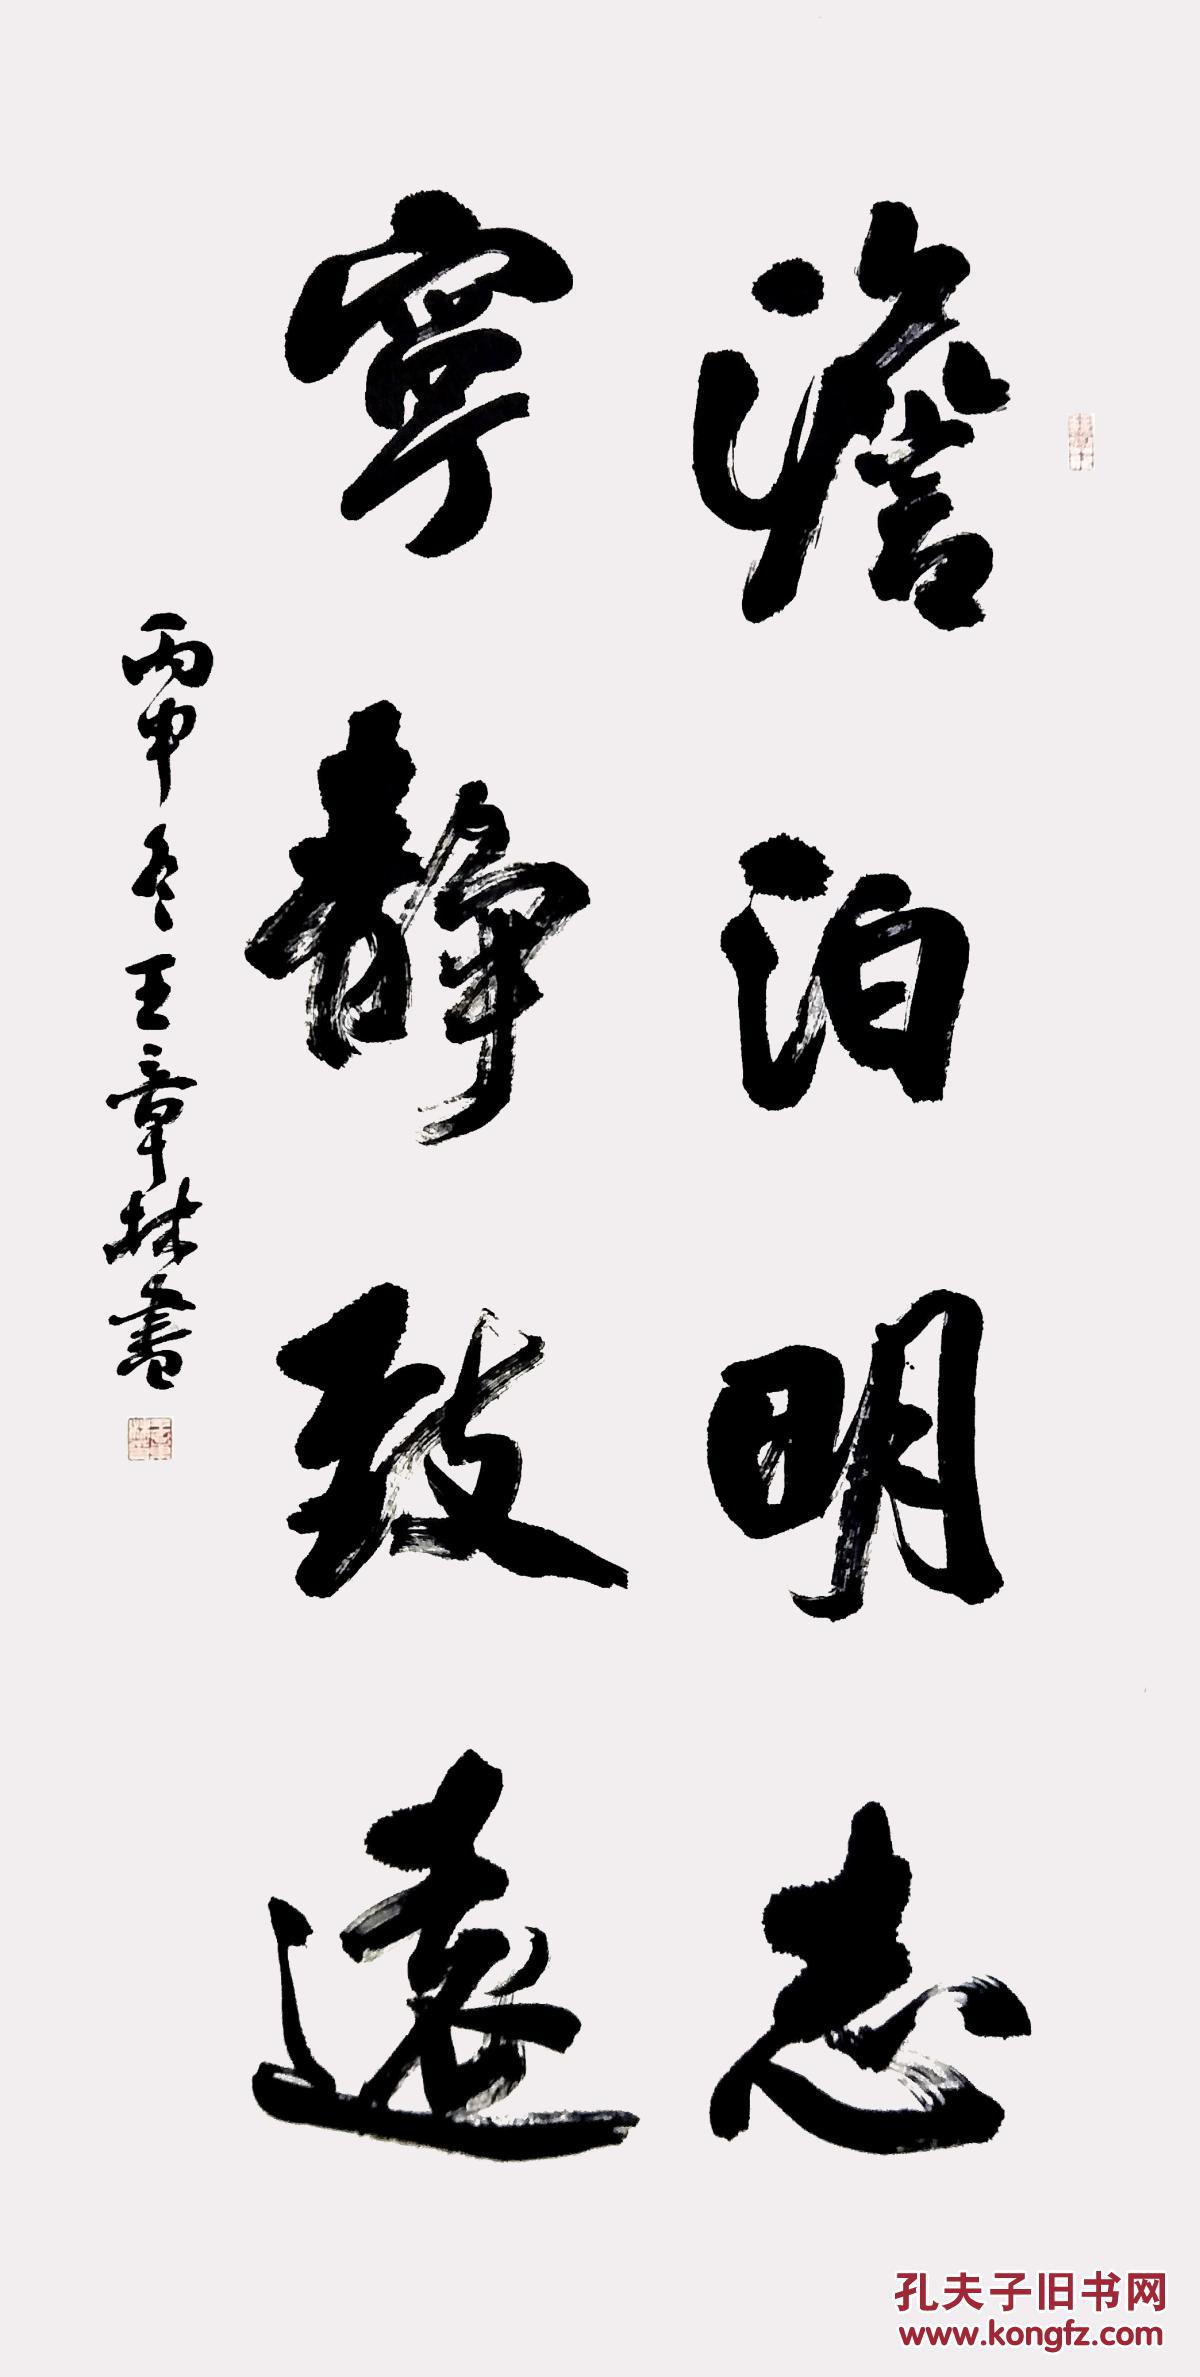 澹泊明志
寧靜致遠
丙申冬王章林書
孔夫子旧书网
www.kongfz.com